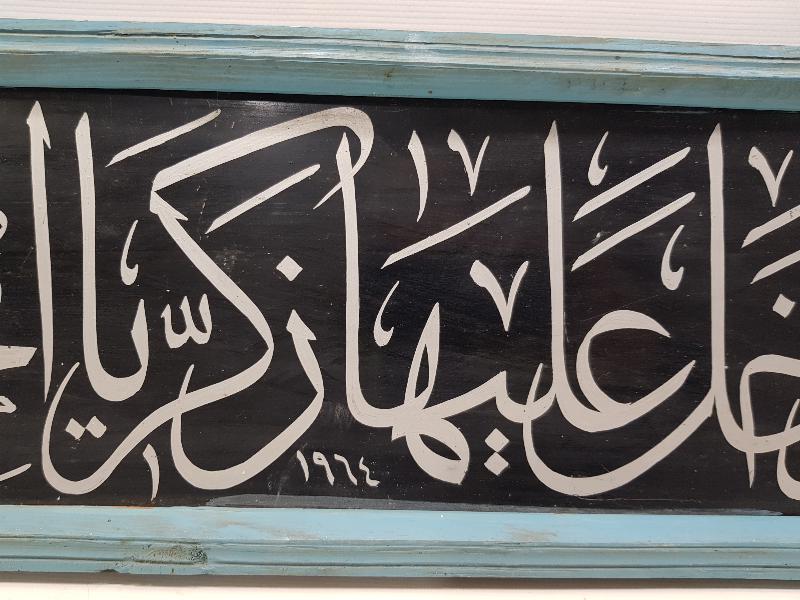 دَخَلَ عَلَيْهَا زَكَرِيَّا
١٩٦٤